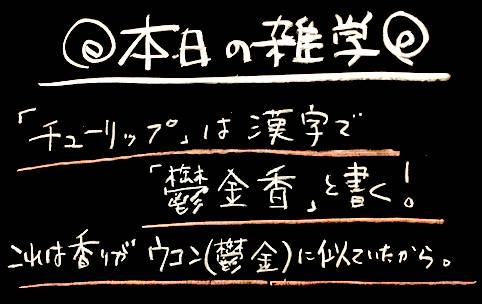 本日の雑学
「チューリップ」は漢字で
「鬱金香」と書く!
これは香りがウコン(鬱金)に似ていたから。